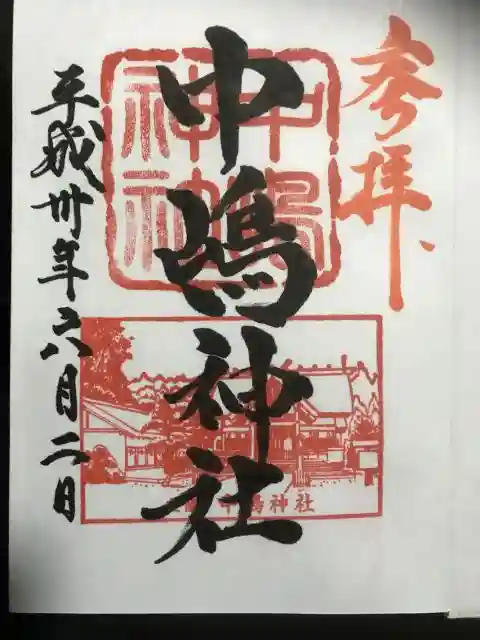 参拝
中嶋神社
平成卅年六月二日
中島神社
中嶋神社